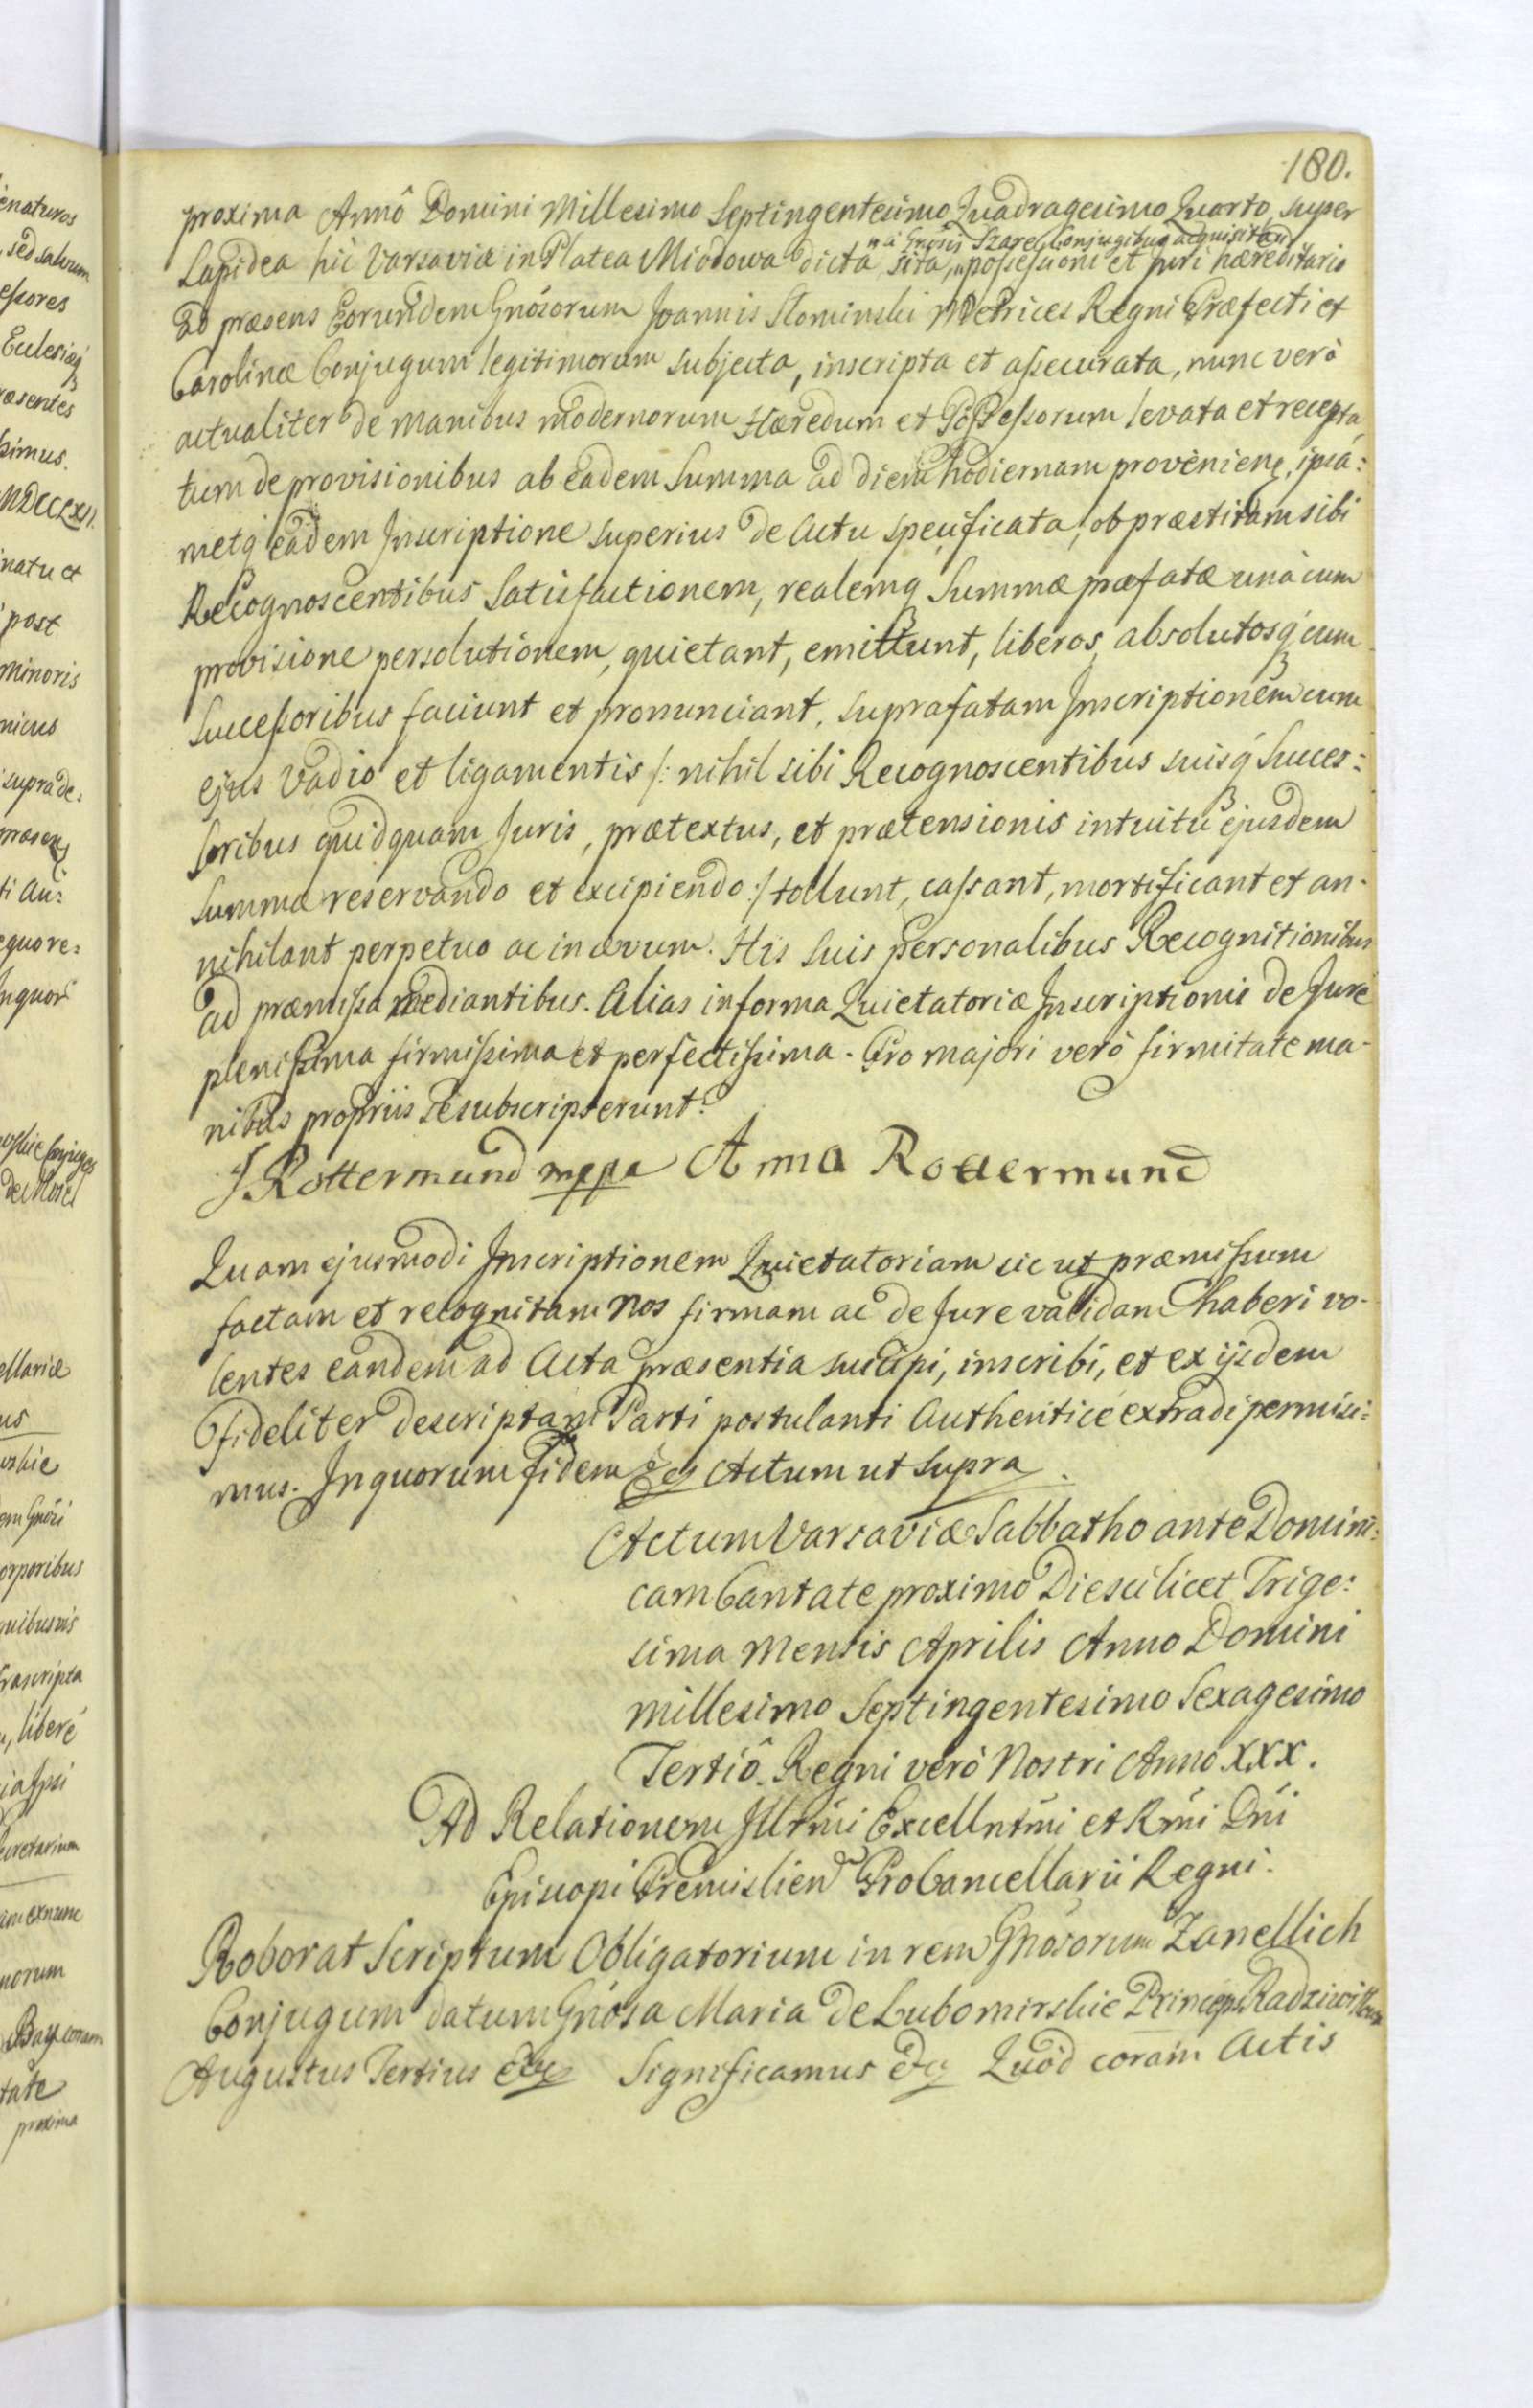 180.
proxima Annô Domini Millesimo Septingentesimo Quadragesimo Quarto, super
Lapidea hic Varsaviæ in Platea Miodowa dicta sita, possessioni et juri hæreditario
a Gnosis Szare Conjugibus acquisita
ad præsens Eorundem Gnosorum Joannis Slominski Metrices Regni Præfecti et
Carolinæ Conjugum legitimorum subjecta, inscripta et assecurata, nunc verò
actualiter de manibus modernorum Hæredum et Possessorum levata et recepta,
tum de provisionibus ab eadem Summa ad diem hodiernam provenien, ipsa:
metq eadem Inscriptione superius de Actu specificata, ob præstitam sibi
Recognoscentibus Satisfactionem, realemq Summæ præfatæ unà cum
provisione persolutionem, quietant, emittunt, liberos, absolutosq cum
Successoribus faciunt et pronunciant, suprafatam Inscriptionem cum
ejus Vadio et ligamentis /: nihil sibi Recognoscentibus suisq Succes:
soribus quidquam Juris, prætextus, et prætensionis intuitu ejusdem
Summæ reservando et excipiendo :/ tollunt, cassant, mortificant et an-
nihilant perpetuo ac in ævum. His suis personalibus Recognitionibus
ad præmissa mediantibus. Alias in forma Quietatoriæ Inscriptionis de Jure
plenissima firmissima et perfectissima. Pro majori verò firmitate ma-
nibus propriis se subscripserunt.
J Rottermund mppa Anna Rottermund
Quam ejusmodi Inscriptionem Quietatoriam sic ut præmissum
factam et recognitam Nos firmam ac de Jure validam haberi vo-
lentes eandem ad Acta præsentia suscipi, inscribi, et ex ijsdem
fideliter descriptam Parti postulanti Authenticè extradi permisi:
mus. In quorum fidem &c Actum ut supra.
Actum Varsaviæ Sabbatho ante Domini:
cam Cantate proximo Die scilicet Trige:
sima Mensis Aprilis Anno Domini
millesimo Septingentesimo Sexagesimo
Tertiô. Regni verò Nostri Anno XXX.
Ad Relationem Illrmi Excellntmi et Rmi Dni
Episcopi Premislien ProCancellarii Regni.
Roborat Scriptum Obligatorium in rem Gnosorum Zanellich
Conjugum datum Gnosa Maria de Lubomirskie Princeps Radziwiłłowa
Augustus Tertius &c Significamus &c Quod coram Actis